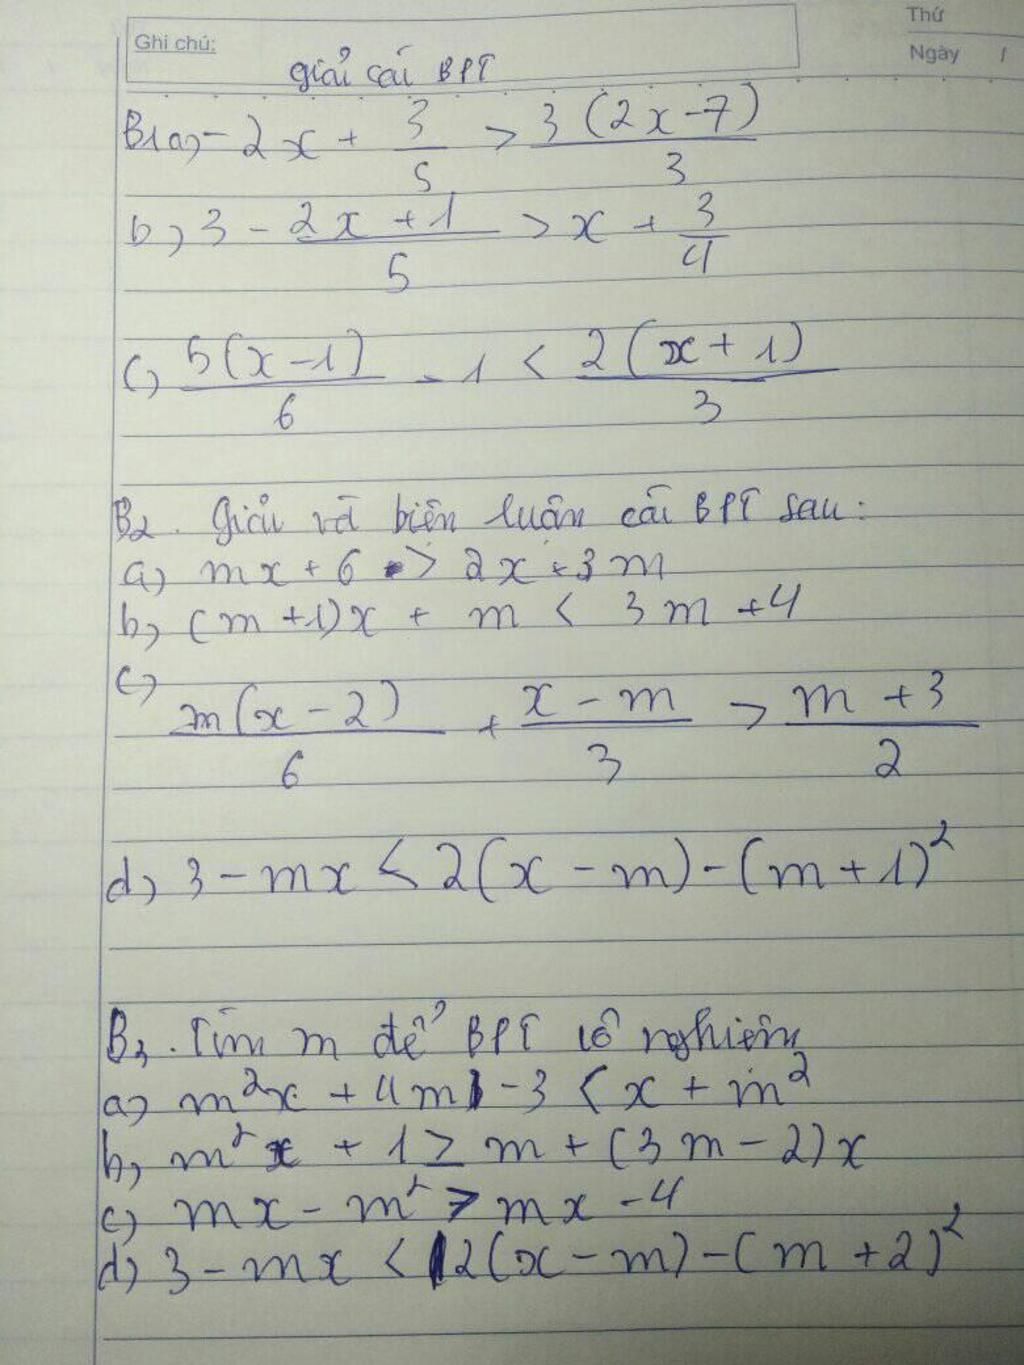 Thứ
Ghi chú:
Ngày /
giải các BPT
B1a) -2x + 3/5 > 3(2x-7)/3
b) 3 - 2x+1/5 > x + 3/4
c) 5(x-1)/6 - 1 < 2(x+1)/3
B2. Giải và biện luận các BPT sau:
a) mx + 6 > 2x + 3m
b) (m+1)x + m < 3m + 4
c) m(x-2)/6 + x-m/3 > m+3/2
d) 3 - mx < 2(x-m) - (m+1)²
B3. Tìm m để BPT vô nghiệm
a) m²x + 4m - 3 < x + m²
b) m²x + 1 ≥ m + (3m-2)x
c) mx - m² > mx - 4
d) 3 - mx < 2(x-m) - (m+2)²